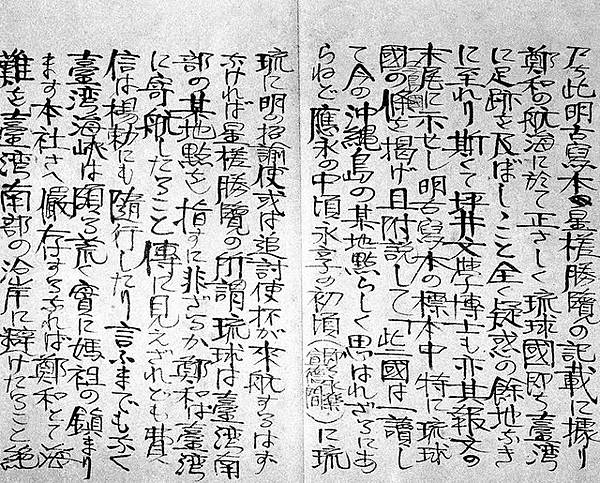 乃ち此明古寫本星槎勝覽の記載に據り
鄭和の航海に於て正さしく琉球國即ち臺湾
に足跡を及ばしこと全く疑惑の餘地なき
に至れり斯くて坪井文學博士も亦其報文の
末尾に示せし明古寫本の標本中特に琉球
國の條を掲げ且附説して「此一國は一讀し
て今の沖縄島の某地點らしく思はれざるにあ
らねど應永の中頃永享の初頃(明ノ永樂宣德間)に琉
琉に明の招諭使或は追討使抔が來航するはず
なければ星槎勝覽の所謂琉球は臺湾南
部の某地點を指すに非ざるか鄭和は臺湾
に寄航したること傳に見えざれども費
信は楊勅にも隨行したり言ふまでもなく
臺湾海峡は頗る荒く實に媽祖の鎮まり
ます本社さへ儼存するなれば鄭和とて海
難を臺湾南部の沿岸に避けたること絶